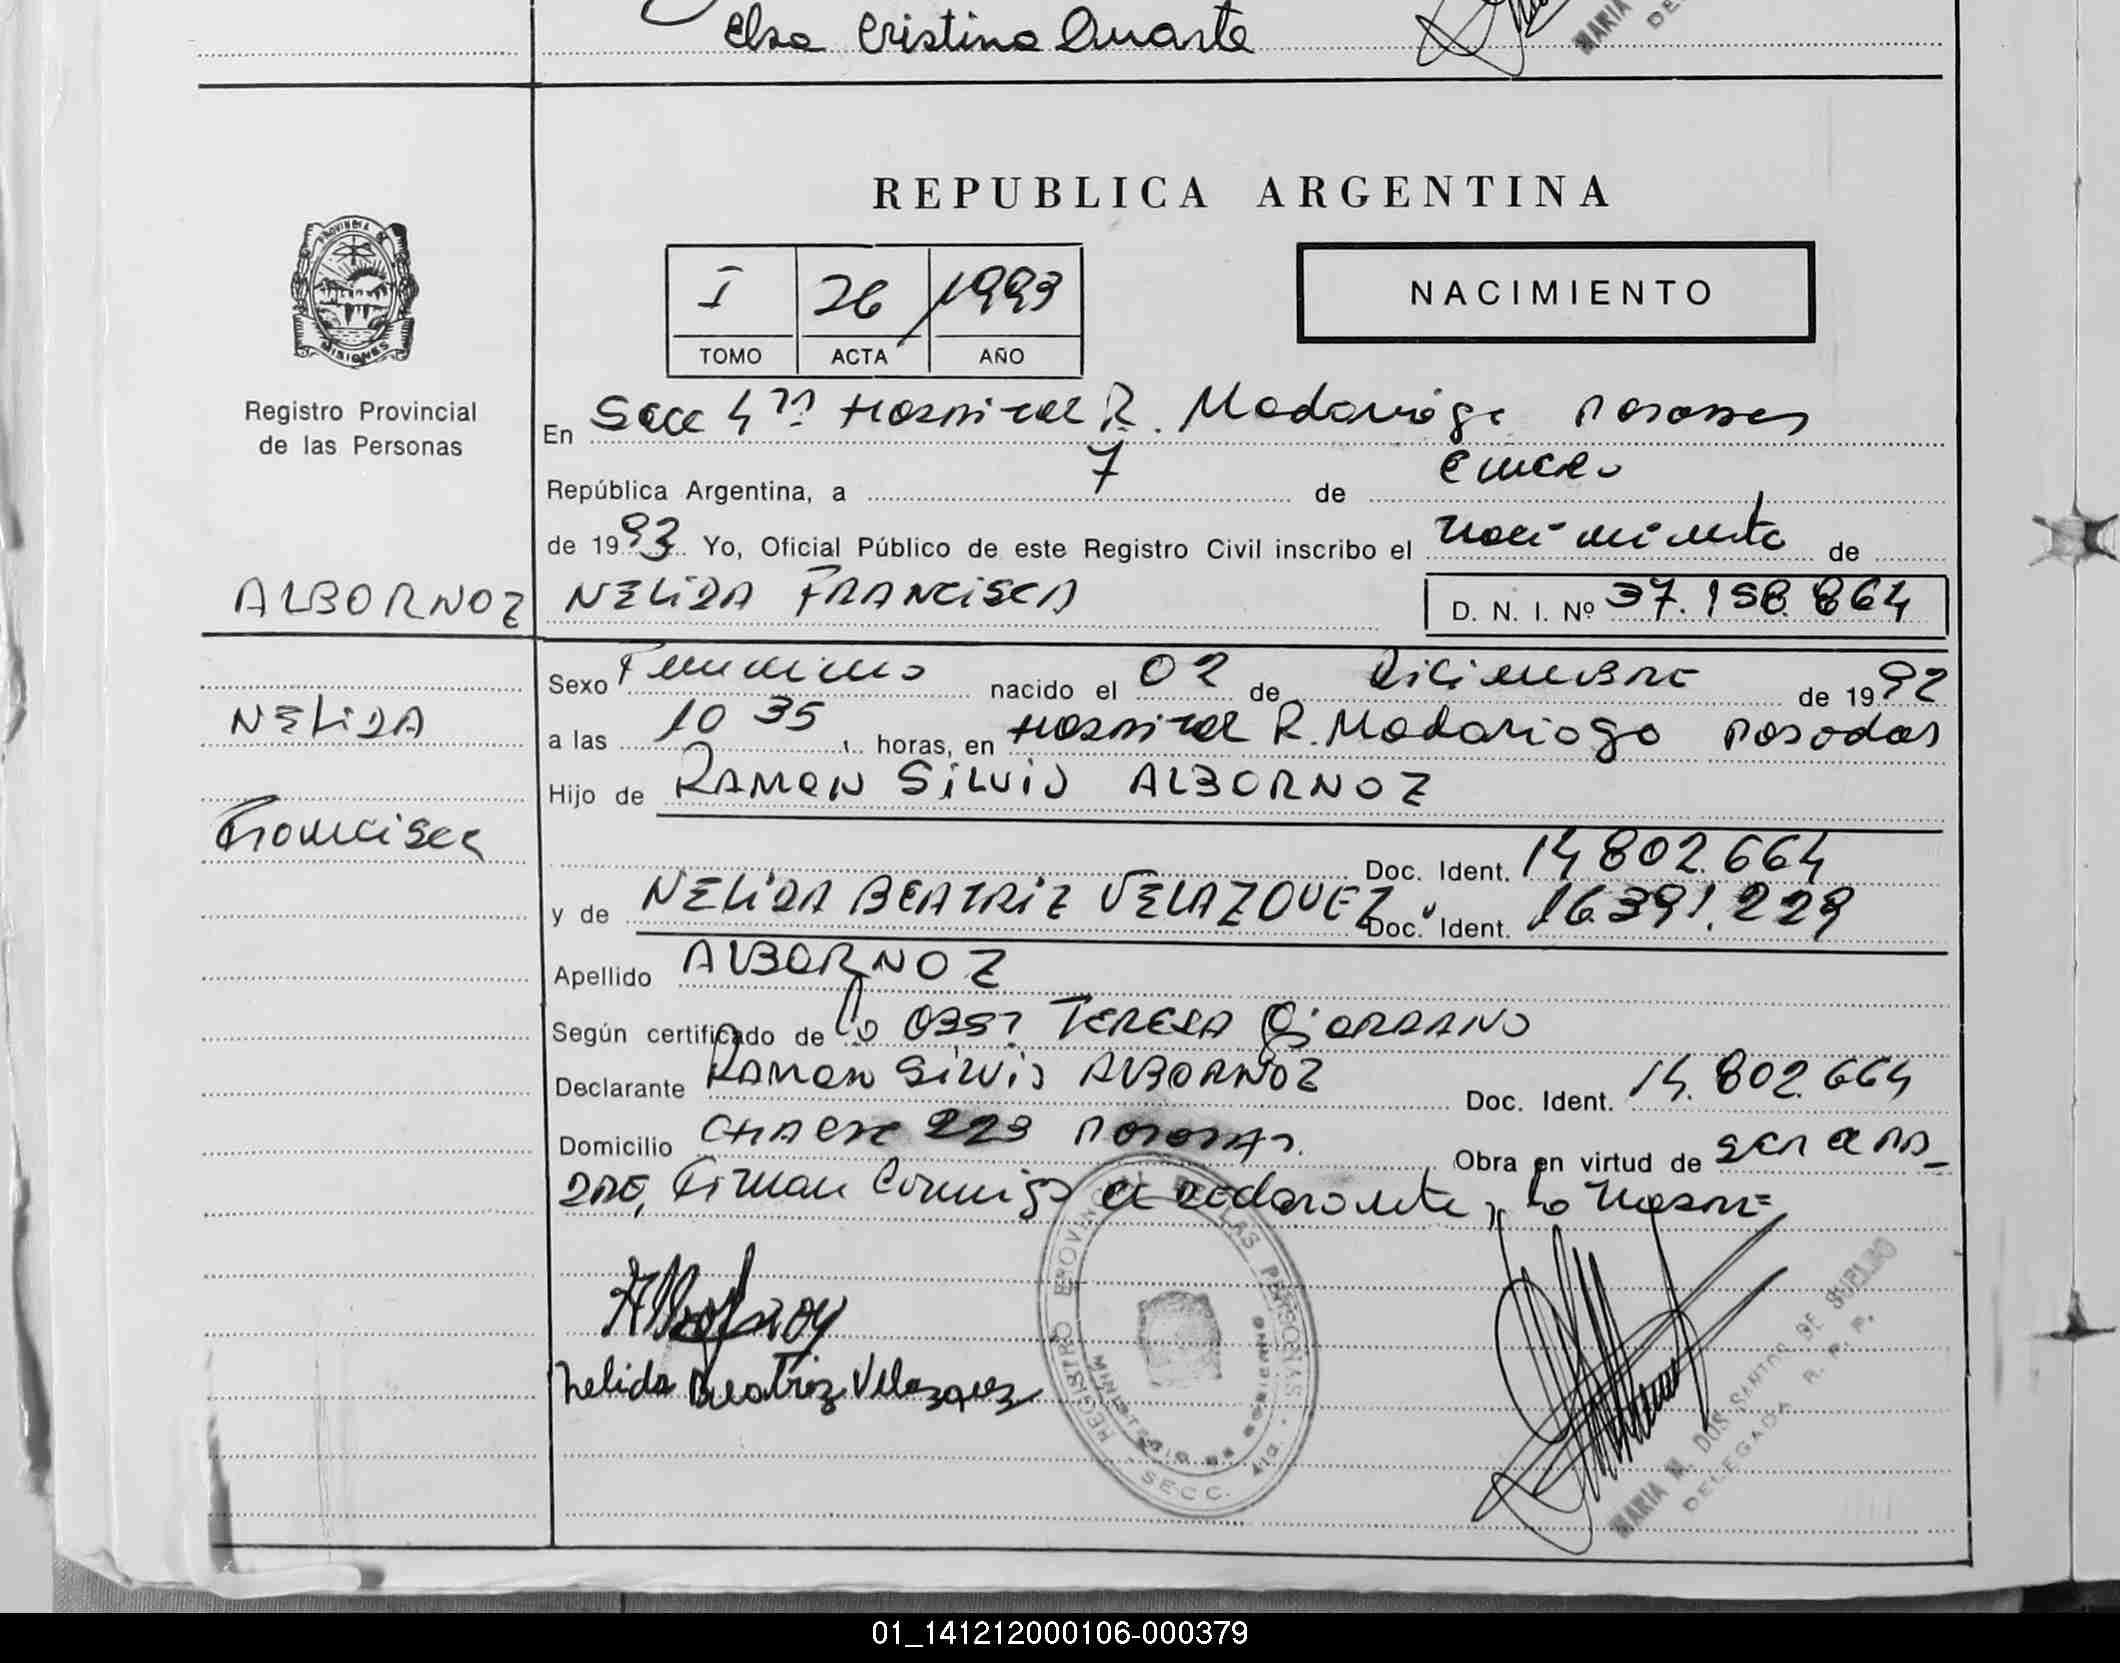 Elsa Cristina Duarte
MARIA
DE
REPUBLICA ARGENTINA
PROVINCIA DE
MISIONES
I 26 / 1993
TOMO ACTA AÑO
NACIMIENTO
Registro Provincial
de las Personas
En Secc 4ta Hospital R. Madariaga Posadas
República Argentina, a 7 de enero
de 1993 Yo, Oficial Público de este Registro Civil inscribo el nacimiento de
ALBORNOZ NELIDA FRANCISCA D. N. I. Nº 37.158.864
Sexo Femenino nacido el 02 de Diciembre de 1992
NELIDA
a las 10 35 horas, en Hospital R. Madariaga Posadas
Hijo de RAMON SILVIO ALBORNOZ
Francisca
Doc. Ident. 14 802.664
y de NELIDA BEATRIZ VELAZQUEZ Doc. Ident. 16.391.229
Apellido ALBORNOZ
Según certificado de la OBST TERESA GIORDANO
Declarante RAMON SILVIO ALBORNOZ Doc. Ident. 14.802.664
Domicilio CHACRA 223 POSADAS. Obra en virtud de ser el pa-
dre, Firman Conmigo el declarante y la madre
Albornoz
Nelida Beatriz Velazquez
REGISTRO PROVINCIAL DE LAS PERSONAS
MINISTERIO DE GOBIERNO
SECC. 4ta
MARIA M. DOS SANTOS DE SUELDO
DELEGADA R. P. P.
01_141212000106-000379